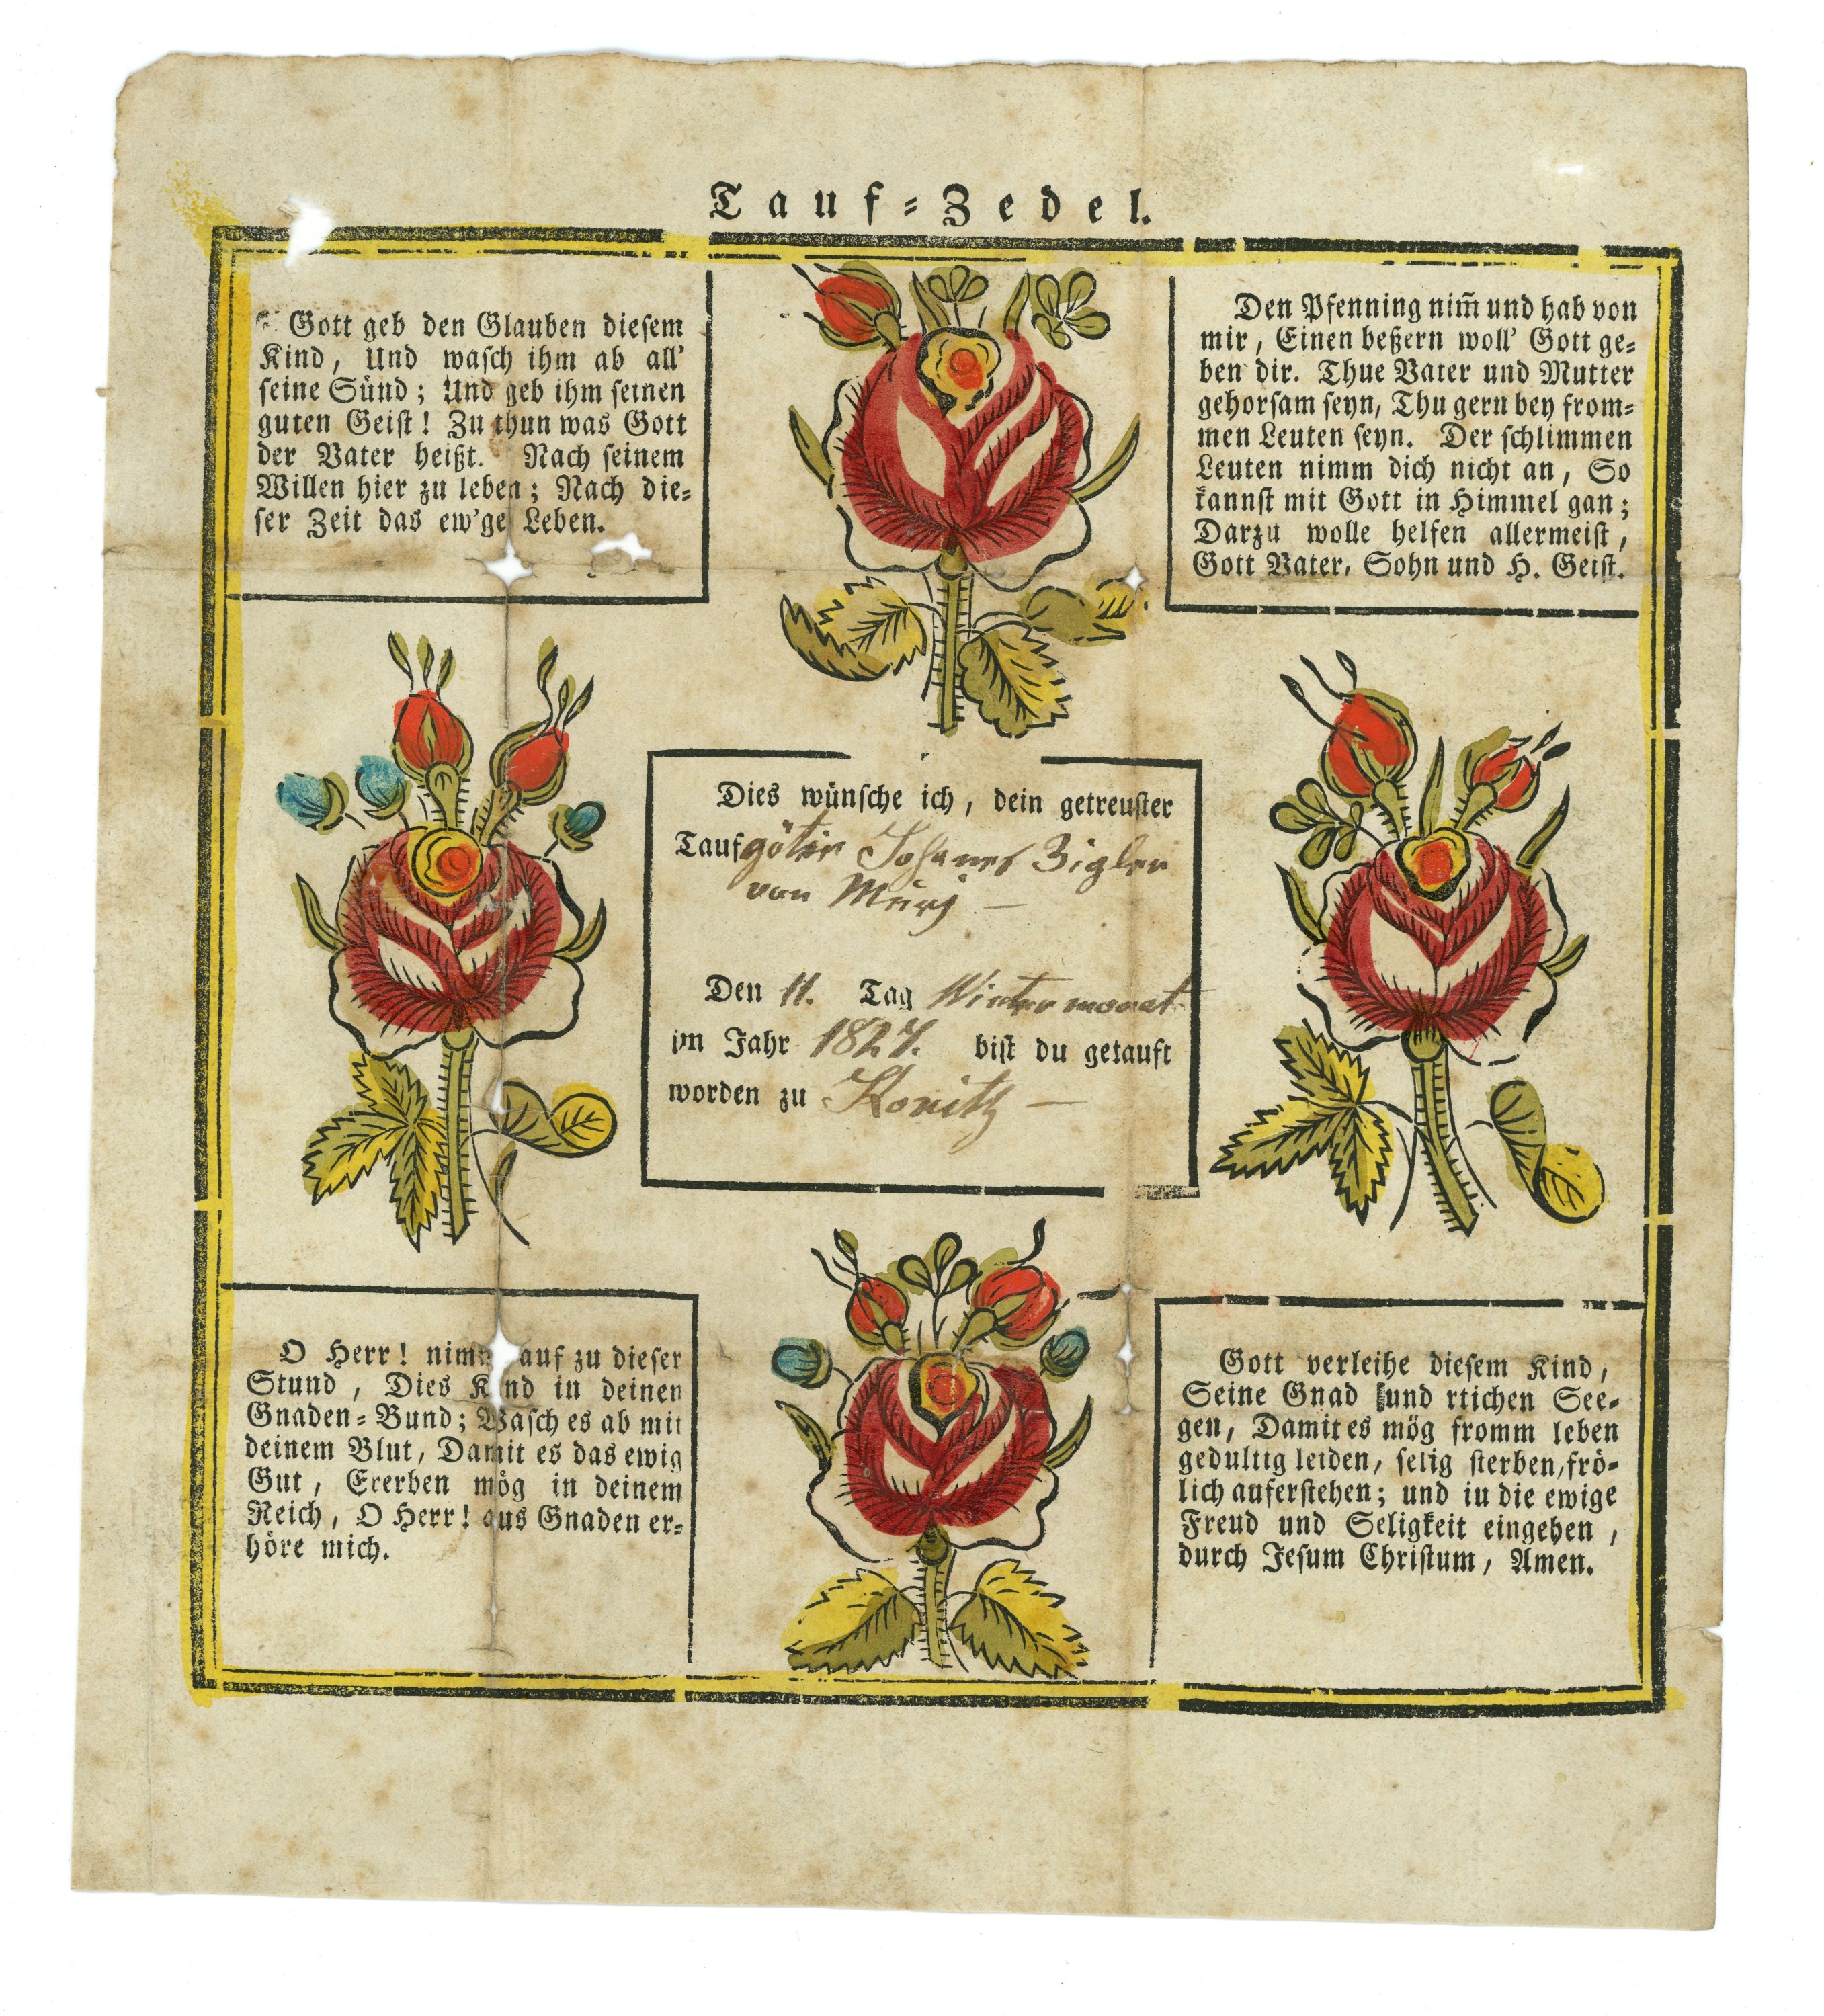 Tauf=Zedel.
Gott geb den Glauben dieſem
Kind, Und waſch ihm ab all'
ſeine Sünd; Und geb ihm ſeinen
guten Geiſt! Zu thun was Gott
der Vater heißt. Nach ſeinem
Willen hier zu leben; Nach die=
ſer Zeit das ew'ge Leben.
Den Pfenning nim̃ und hab von
mir, Einen beßern woll' Gott ge=
ben dir. Thue Vater und Mutter
gehorſam ſeyn, Thu gern bey from=
men Leuten ſeyn. Der ſchlimmen
Leuten nimm dich nicht an, So
kannſt mit Gott in Himmel gan;
Darzu wolle helfen allermeiſt,
Gott Vater, Sohn und H. Geiſt.
Dies wünſche ich, dein getreuſter
Taufgötin Johanes Zigler
von Murj —
Den 11. Tag Wintermonat
im Jahr 1827. biſt du getauft
worden zu Konitz —
O Herr! nimm auf zu dieſer
Stund, Dies Kind in deinen
Gnaden=Bund; Waſch es ab mit
deinem Blut, Damit es das ewig
Gut, Ererben mög in deinem
Reich, O Herr! aus Gnaden er=
höre mich.
Gott verleihe dieſem Kind,
Seine Gnad und rtichen See=
gen, Damit es mög fromm leben
gedultig leiden, ſelig ſterben, frö=
lich auferſtehen; und in die ewige
Freud und Seligkeit eingehen,
durch Jeſum Chriſtum, Amen.